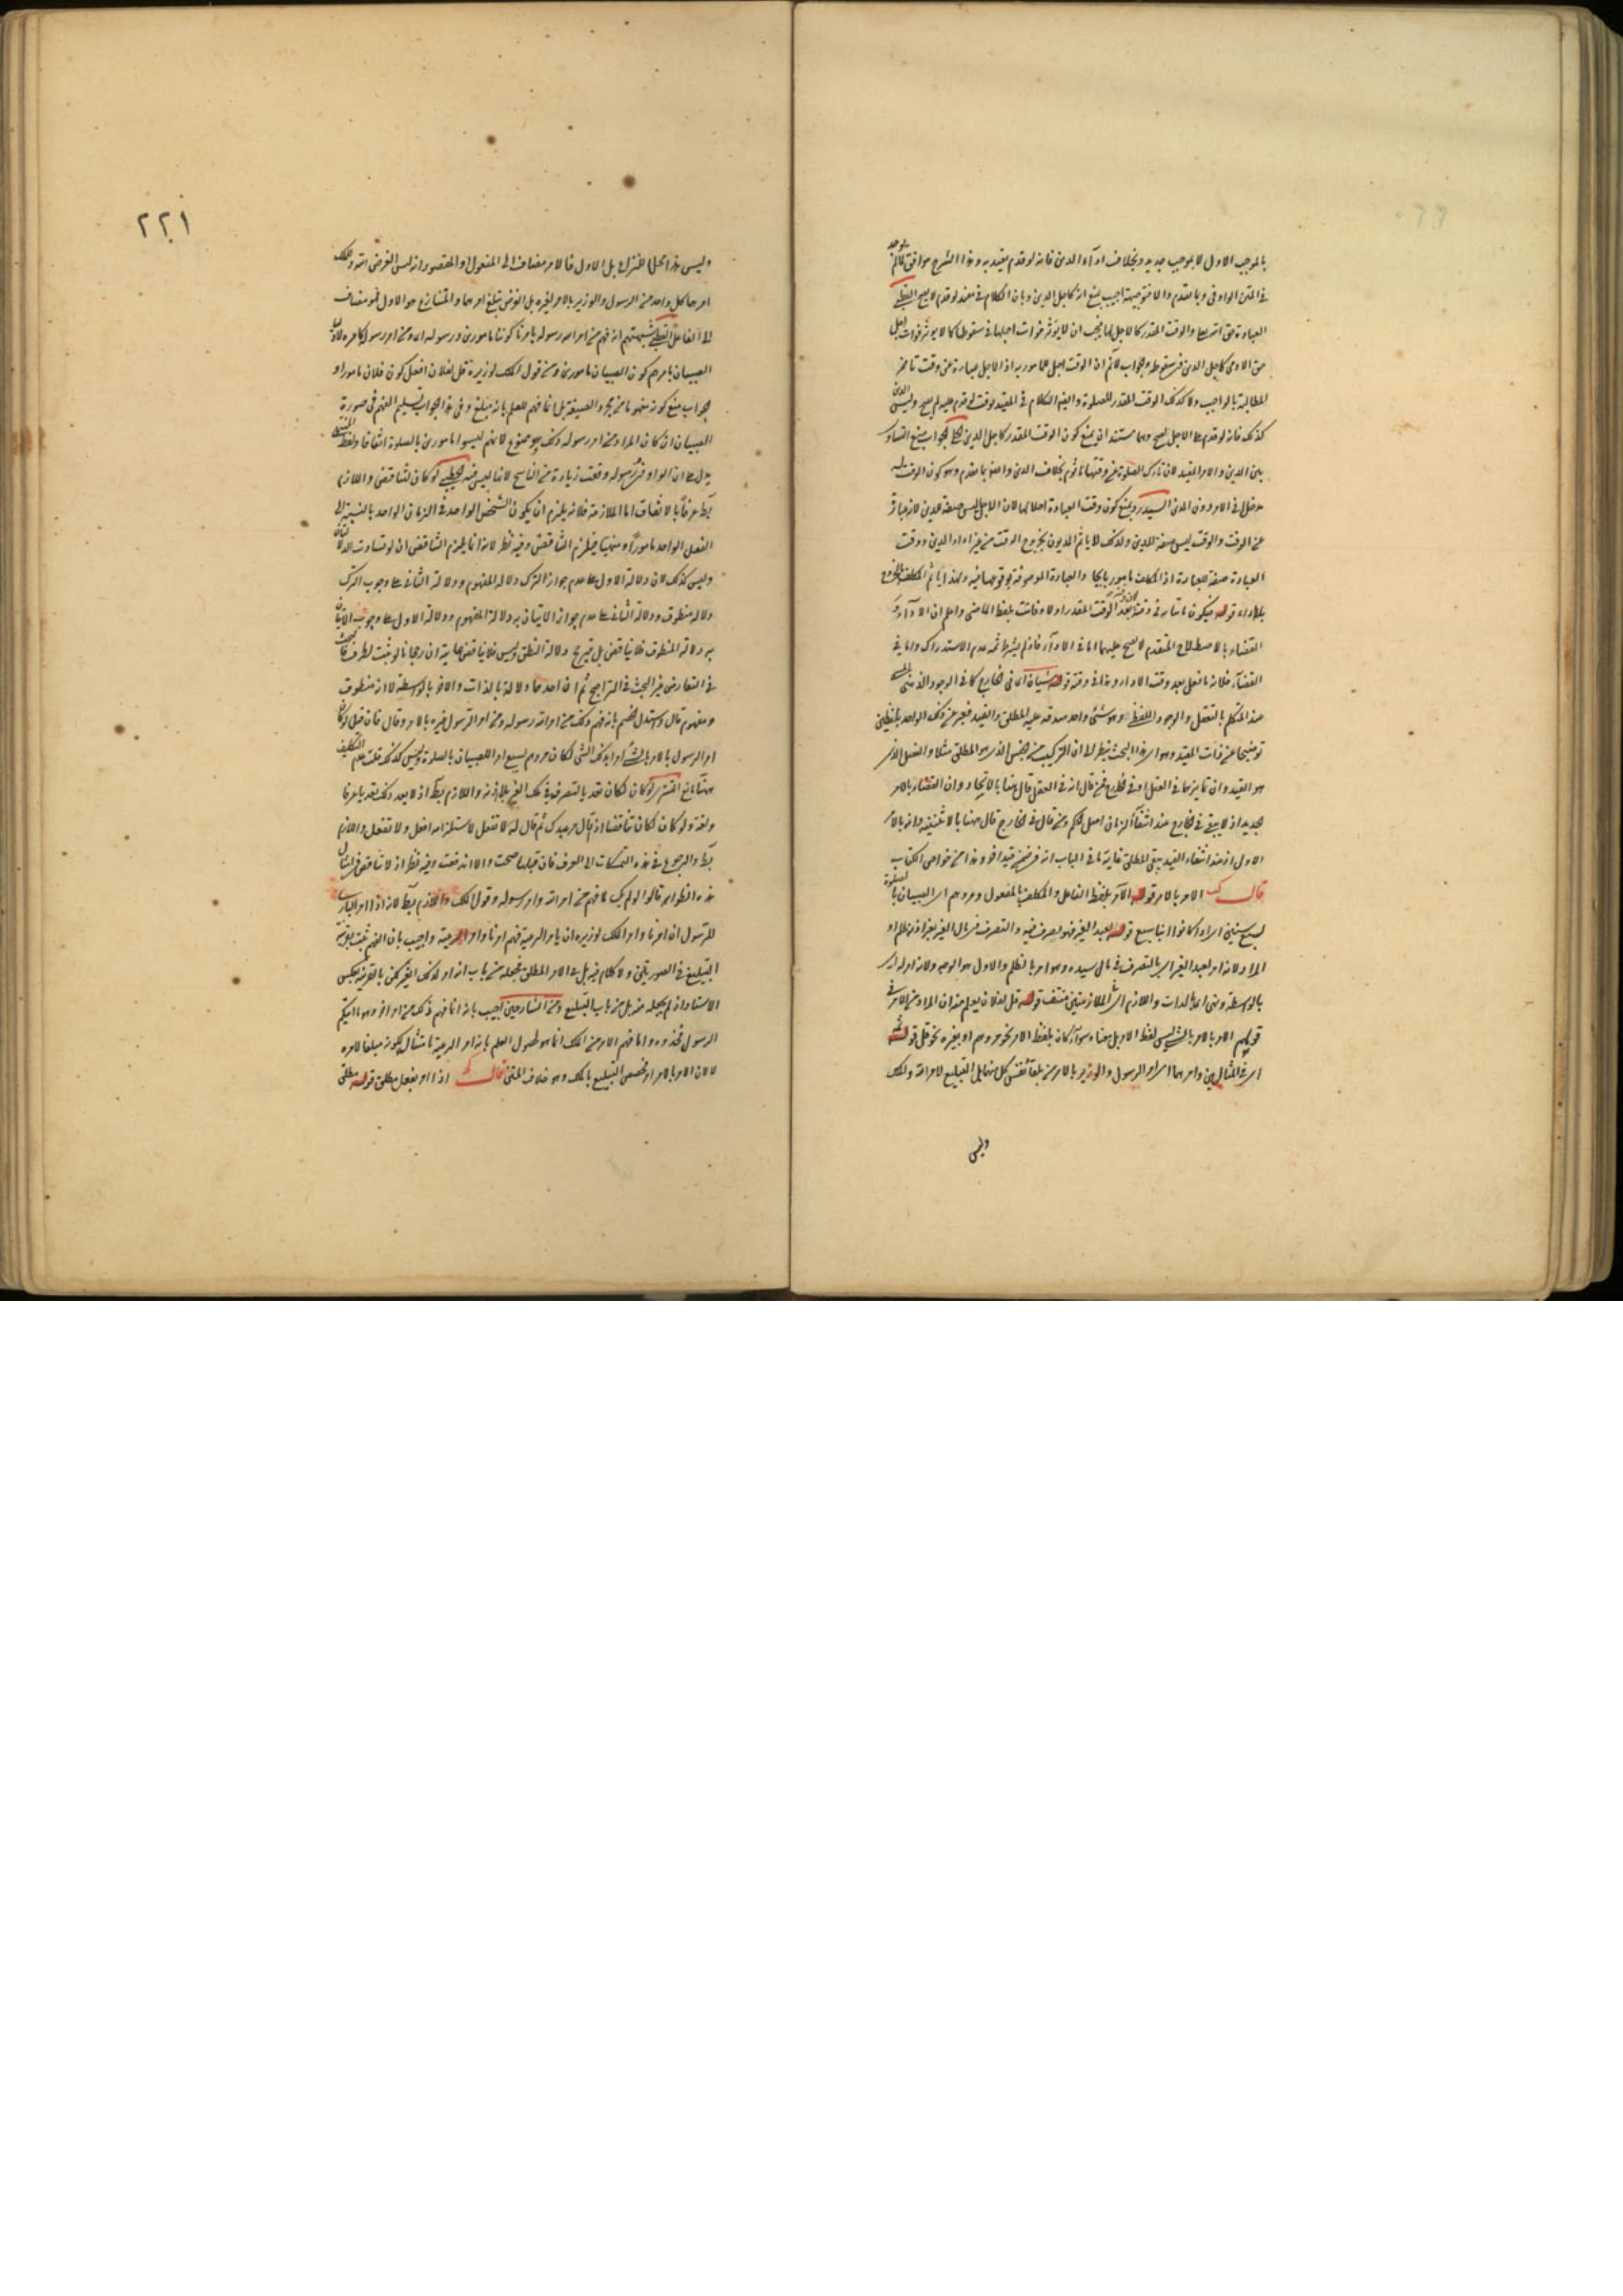 بالموجب الاول لا بموجب جديد وبخلاف اداء الدين فانه لو قدم يعتد به وهذا الشرح موافق لما لم يوجد
في المتن الواو في وبا مقدم والا فتوجيهه اجيب بمنع انه كاجل الدين وبان الكلام في مقيد لو قدم لا يصح
العبادة حق الله تعالى والوقت المقدر كالاجل لها فيجب ان لا يؤثر فوات اجلها في سقوطها كما لا يؤثر فوات اجل
حق الادمي كاجل الدين في سقوطه والجواب لا نم ان الوقت اجل للمأمور به اذ الاجل عبارة عن وقت تأخر
المطالبة بالواجب ولا كذلك الوقت المقدر للصلوة وايضا الكلام في المقيد بوقت لو قدم عليه لم يصح وليس الدين
كذلك فانه لو قدم على الاجل لصح وهما مستندان لمنع كون الوقت المقدر كاجل الدين الجواب منع التساوي
بين الدين والامر المقيد لان تارك الصلوة عن وقتها مأثوم بخلاف الدين وايضا ما تقدم وهو كون الوقت له
مدخل في الامر دون الدين السيد ويمنع كون وقت العبادة اجلا لها لان الاجل ليس صفة للدين لانه عبارة
عن الوقت والوقت ليس صفة للدين ولذلك لا يأثم المديون بخروج الوقت من غير اداء الدين ووقت
العبادة صفة للعبادة اذ المكلف مأمور بايجا والعبادة الموصوفة بوقوعها فيه ولهذا يأثم المكلف
بلا اداء قوله فيكون ما يأتي به في وقت بعد الوقت المقدر اولا وفائت بلفظ الماضي واعلم ان الاداء و
القضاء بالاصطلاح المتقدم لا يصح عليهما اما في الاداء فاذ لم يشترط ثمه عدم الاستدراك واما في
القضاء فلانه ما فعل بعد وقت الاداء وهذا في وقته قوله شيئان اى في الخارج كما في الوجود الذهني
عند المتكلم بالتعقل والوجود اللفظي وهو شئ واحد صدق عليه المطلق والمقيد فعبر عن ذلك الواحد
توضيحا عن ذات المقيد وهو اى هذا البحث ينظر الى ان التركيب من الجنس الذى هو المطلق مثلا والفصل الذى
هو القيد وان تمايزهما في العقل او في الخارج فمن قال انه في العقل قال هنا بالاتحاد وان القضاء بالامر
جديد اذ لا يبقى في الخارج عند انتفاء الزمان اصل الحكم ومن قال في الخارج قال ههنا بالاثنينية وانه بالامر
الاول اذ عند انتفاء القيد يبقى المطلق غاية ما في الباب انه في ضمن قيد اخر وهذا من خواص الكتاب
قال ك الامر بالامر قوله الآمر بلفظ الفاعل والمكلف بالمفعول ومروهم اى الصبيان بالصلوة
لسبع سنين اى اذا كانوا ابناء سبع قوله بعبد الغير فهو تصرف فيه والتصرف في مال الغير بغير اذنه ظلم او
المراد لانه امر لعبد الغير اى بالتصرف في مال سيده وهو امر بالظلم والاول هو الوجه ولانه امر له
بالواسطة ونهى اياه بالذات واللازم اى الملازمتين منتف قوله قل لفلان يعلم منه ان المراد من الامر في
قولهم الامر بالامر بالشئ ليس لفظ الامر بل معناه سواء كان بلفظ الامر نحو مروهم او بغيره نحو قل قوله ثمه
اى في المثالين وامرهما اى امر الرسول والوزير بالامر من بلغا نفس كل منهما على التبليغ لامر الله والملك
وليس
٢٢١
وليس هذا محل النزاع بل الاول فالامر مضاف الى المفعول او المقصود انه ليس الغرض امر الله والملك
امرهما كل واحد من الرسول والوزير بالامر لغيره بل الغرض تبليغ امرهما والمتنازع هو الاول فهو مضاف
الى الفاعل شبهتهم انه فهم من امر الله رسوله بأمرنا كوننا مأمورين ورسوله اى ومن امر رسوله
الصبيان بأمرهم كون الصبيان مأمورين ومن قول الملك لوزيره قل لفلان افعل كون فلان مأمورا و
الجواب منع كونه مفهوما من مجرد الصيغة بل انما فهم للعلم بانه مبلغ وفي هذا الجواب تسليم الفهم في صورة
الصبيان ان كان المراد من امر رسوله ذلك وهو ممنوع لانهم ليسوا مأمورين بالصلوة اتفاقا ولفظ
يدل على ان الواو في ورسوله وقعت زيادة من الناسخ لانها ليس فيه الخطبى لو كان لتناقض واللازم
بط عرفا بالاتفاق اما الملازمة فلانه يلزم ان يكون الشخص الواحد في الزمان الواحد بالنسبة الى
الفعل الواحد مأمورا ومنهيا فيلزم التناقض وفيه نظر لانه انما يلزم التناقض ان لو تساوت الدلالتان
وليس كذلك لان دلالة الاول على عدم جواز الترك دلالة المفهوم ودلالة الثاني على وجوب الترك
دلالة منطوق ودلالة الثاني على عدم جواز الاتيان به دلالة المفهوم ودلالة الاول على وجوب الاتيان
به دلالة المنطوق فلا يناقض بل ترجح دلالة النطق وليس فلا يناقض
في التعارض غير البحث في التراجيح ثم ان احدهما دلالة بالذات والاخر بالواسطة لا انه منطوق
ومفهوم قال واستدل الخصم بانه فهم ذلك من امر الله رسوله ومن امر الرسول غيره بالامر وقال فان قيل لو كان
امر الرسول بالامر بالشئ امرا بذلك الشئ لكان مروهم لسبع امرا للصبيان بالصلوة وليس كذلك قلت عدم التكليف
ههنا مانع التستري لو كان لكان تعد بالتصرف في ملك الغير بلا اذنه واللازم بط اذ لا يعد ذلك تعديا عرفا
ولغة ولو كان لكان تناقضا اذ قال مر عبدك ثم قال له لا تفعل لاستلزامه افعل ولا تفعل واللازم
بط والرجوع في هذه التمسكات الى العرف فان قبلها صحت والا اندفعت وفيه نظر اذ لا تناقض في امثال
هذه الظواهر قالوا لو لم يكن لما فهم من امر الله وامر رسوله وقول الملك واللازم بط لانه اذا امر البارى
للرسول ان امرنا وامر الملك لوزيره ان يأمر الرعية فهم امرنا وامر الرعية واجيب بان الفهم ثمت بقرينة
التبليغ في الصورتين ولا كلام فيه بل في الامر المطلق فجعله من باب انه امر لذلك الغير لكن بالقرينة بعكس
الاستاذ اذ لم يجعله منه بل من باب التبليغ ومن الشارحين اجيب بانه انما فهم ذلك من امر اخر وهو ما اتيكم
الرسول فخذوه وانما فهم الامر من الملك انما هو لحصول العلم بانه امر الرعية بامتثال لكونه مبلغا لامره
لا لان الامر بالامر امر تخصيص التبليغ بالملك وهو خلاف المتن قال ك اذا امر بفعل مطلق قوله مطلق